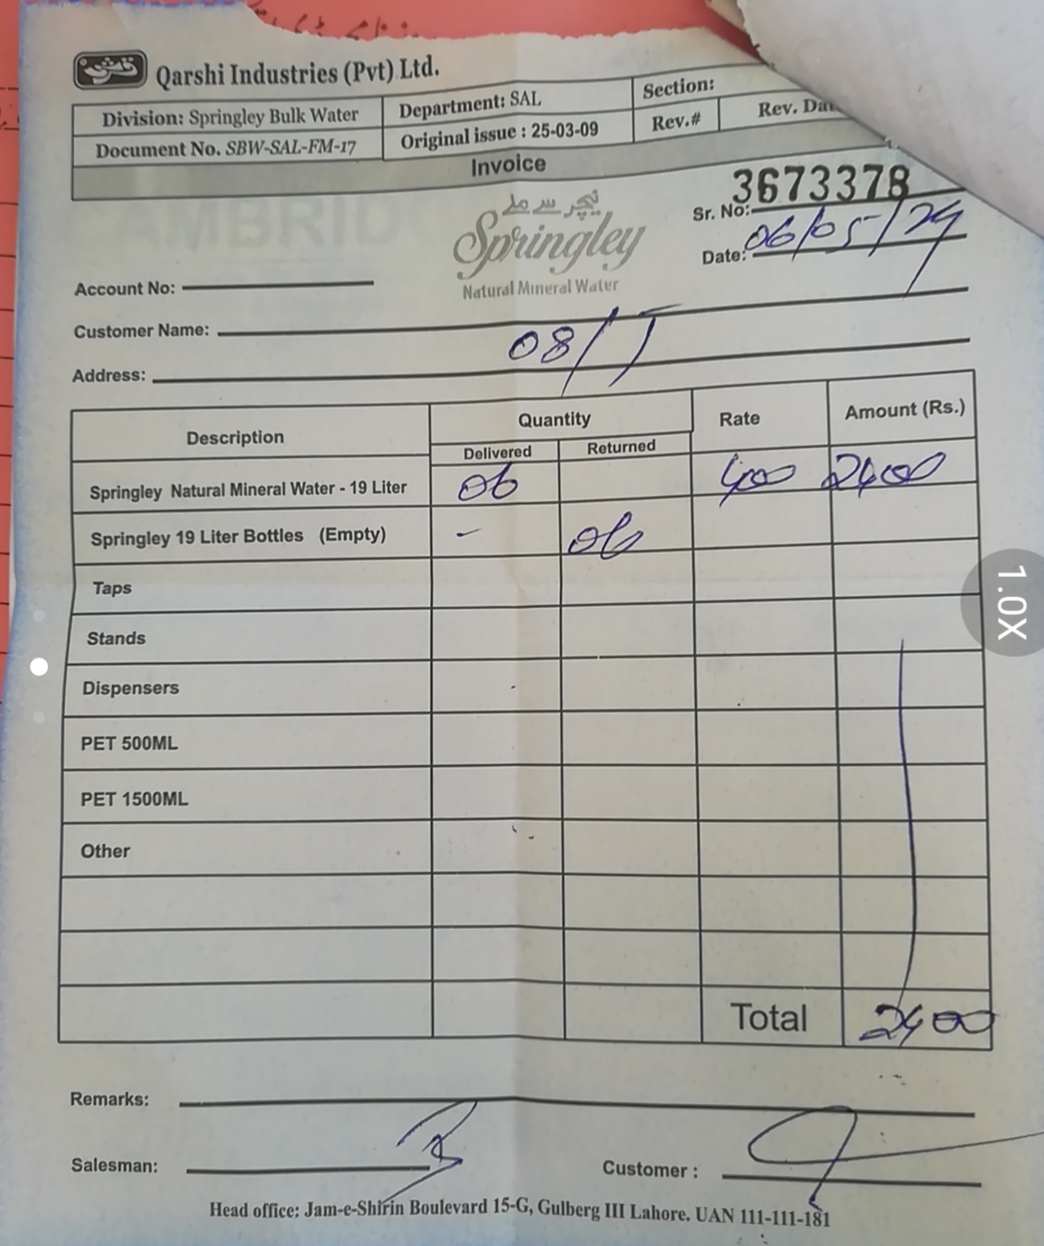 قرشی
Qarshi Industries (Pvt) Ltd.
Division: Springley Bulk Water
Department: SAL
Section:
Document No. SBW-SAL-FM-17
Original issue : 25-03-09
Rev.#
Rev. Da
Invoice
نیچر سے ملے
Springley
Natural Mineral Water
3673378
Sr. No:
Date: 06/05/24
Account No:
Customer Name:
08/J
Address:
Description Quantity Rate Amount (Rs.)
Delivered Returned
Springley Natural Mineral Water - 19 Liter 06 400 2400
Springley 19 Liter Bottles (Empty) - 06
Taps
Stands
Dispensers
PET 500ML
PET 1500ML
Other
Total 2400
Remarks:
Salesman:
Customer :
Head office: Jam-e-Shirin Boulevard 15-G, Gulberg III Lahore. UAN 111-111-181
1.0X